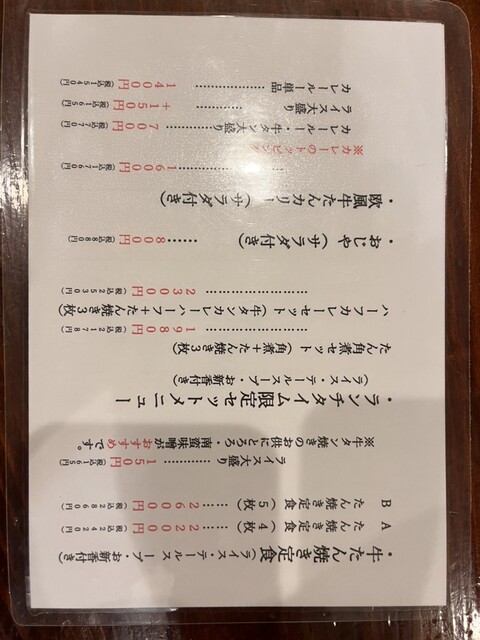 ・牛たん焼き定食(ライス・テールスープ・お新香付き)
A たん焼き定食(4枚)……2200円(税込2420円)
B たん焼き定食(5枚)……2600円(税込2860円)
ライス大盛り……………150円(税込165円)
※牛タン焼きのお供にとろろ・南蛮味噌がおすすめです。
・ランチタイム限定セットメニュー
(ライス・テールスープ・お新香付き)
たん角煮セット(角煮+たん焼き3枚)
……………………1980円(税込2178円)
ハーフカレーセット(牛タンカレーハーフ+たん焼き3枚)
……………………2300円(税込2530円)
・おじや(サラダ付き)……800円(税込880円)
・欧風牛たんカリー(サラダ付き)
……………………1600円(税込1760円)
※カレーのトッピング
カレールー・牛タン大盛り……………700円(税込770円)
ライス大盛り…………+150円(税込165円)
カレールー単品……………1400円(税込1540円)